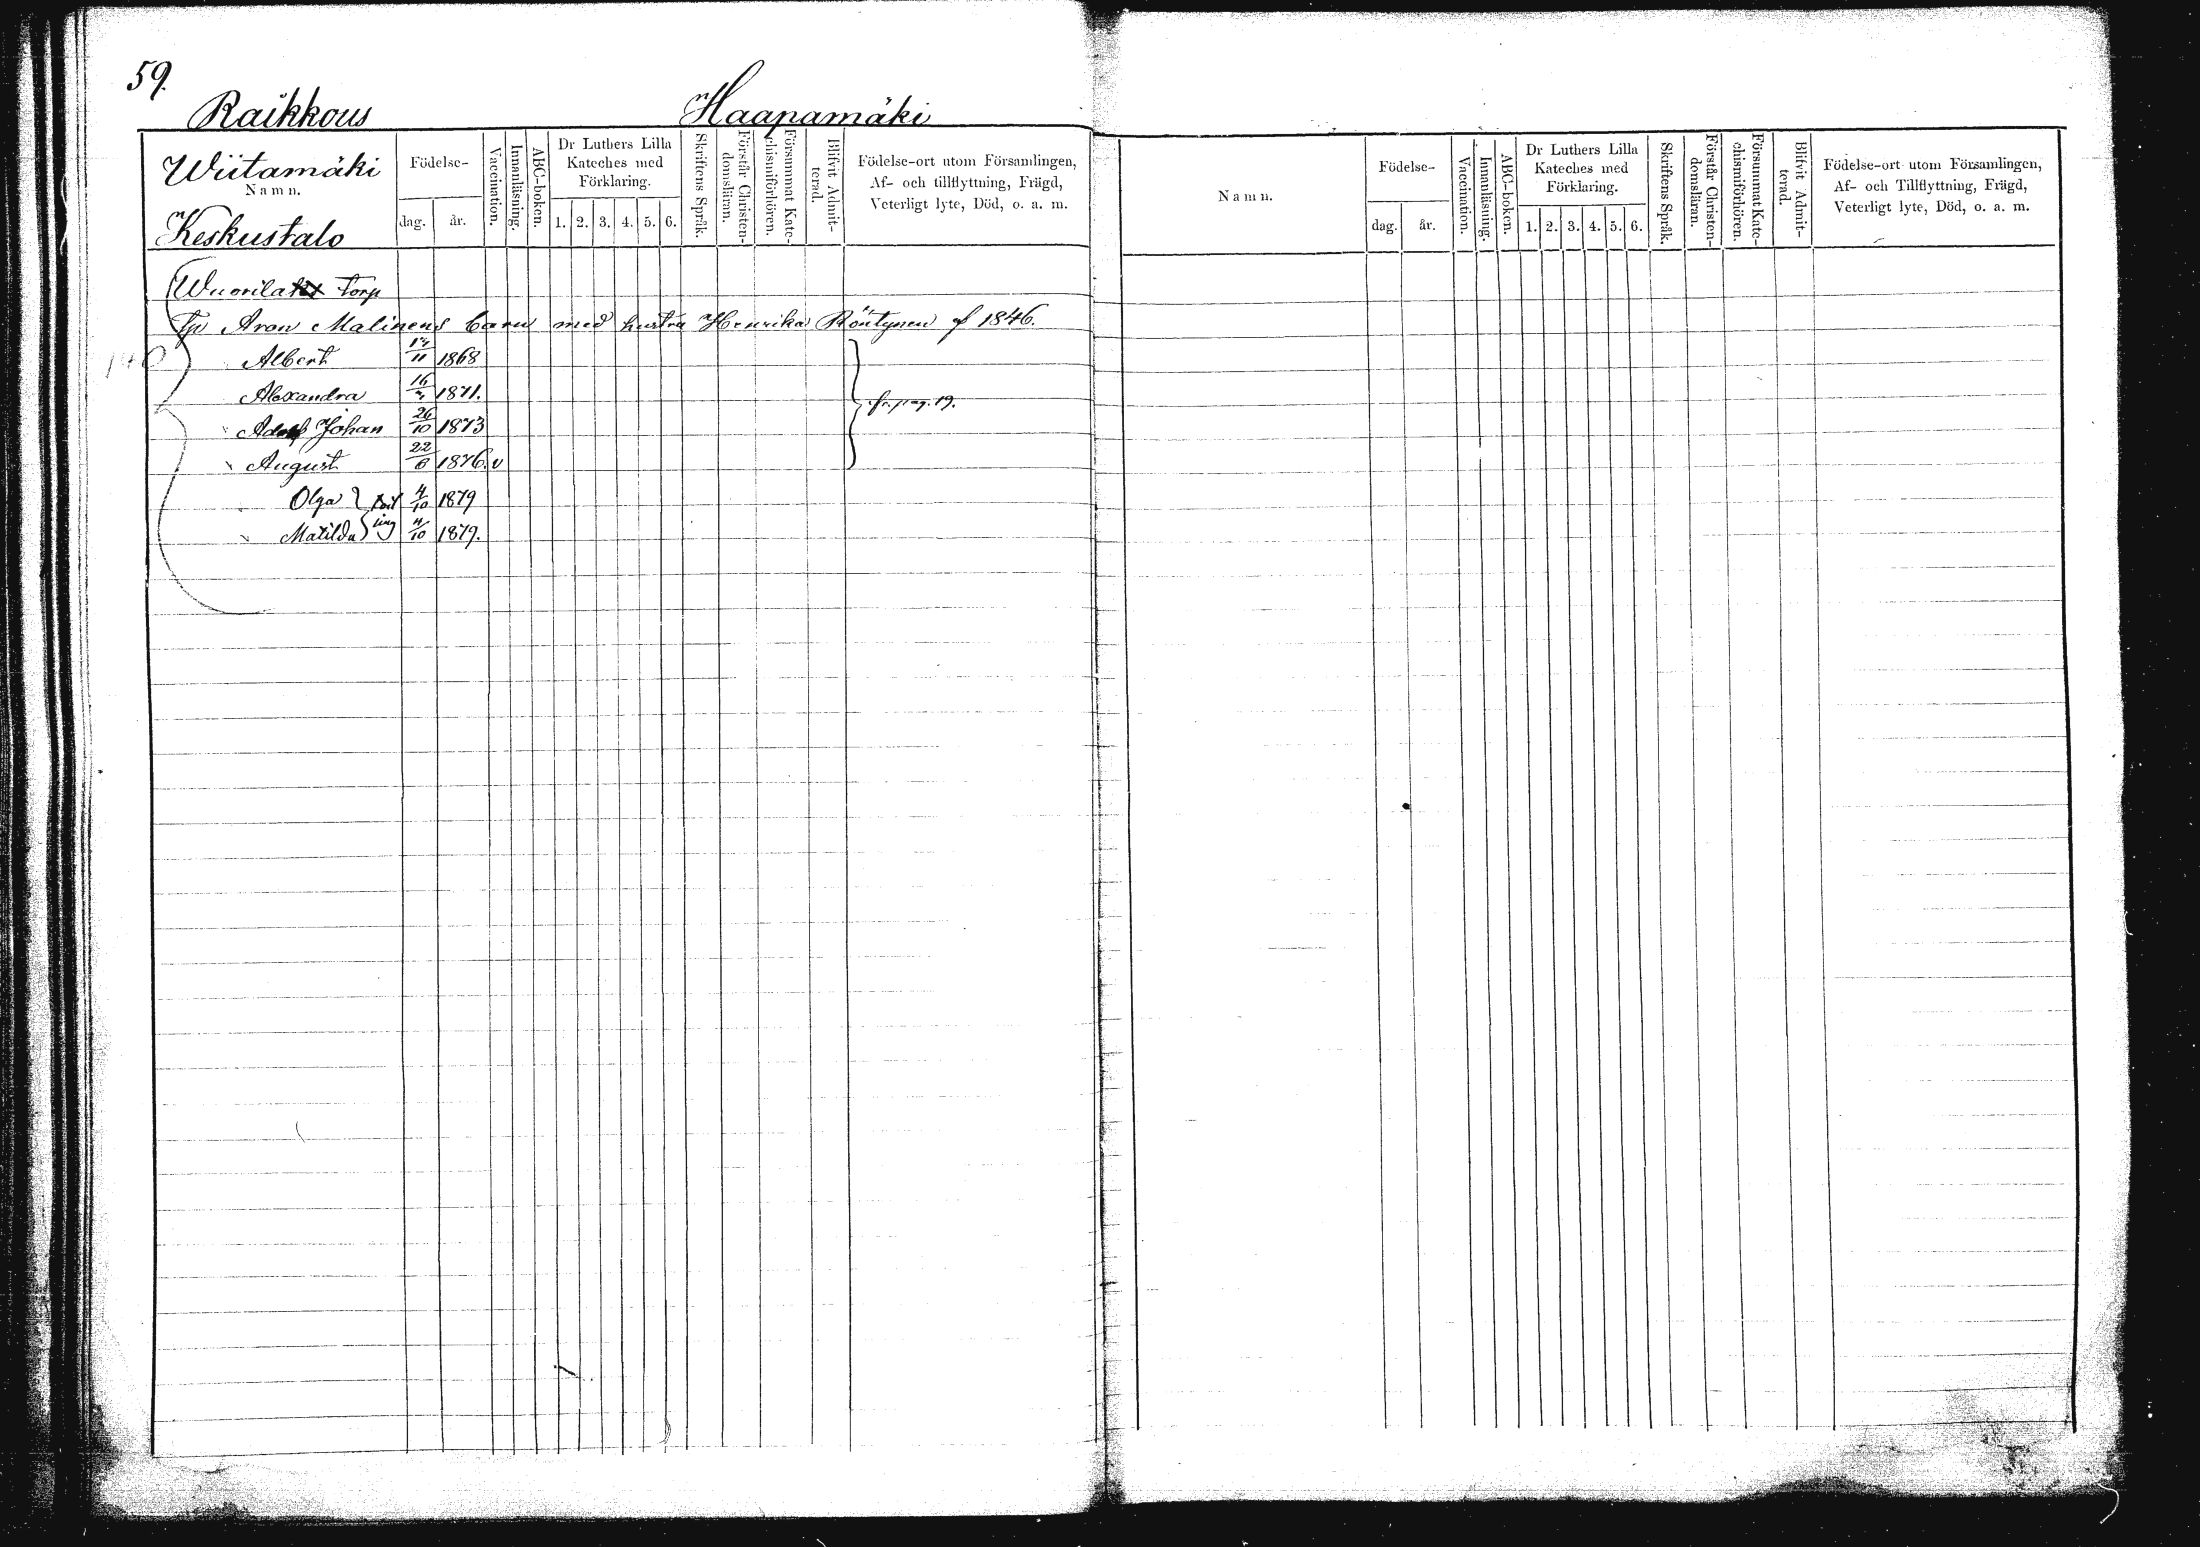 59.
Raikkous Haapamäki
Wiitamäki
Namn.
Keskustalo
Födelse-
dag. år.
Vaccination.
Innanläsning.
ABC-boken.
Dr Luthers Lilla
Kateches med
Förklaring.
1. 2. 3. 4. 5. 6.
Skriftens Språk.
Förstår Christen-
domsläran.
Försummat Kate-
chismiförhören.
Blifvit Admit-
terad.
Födelse-ort utom Församlingen,
Af- och tillflyttning, Frägd,
Veterligt lyte, Död, o. a. m.
Wuorila Torp
Tp Aron Malinens barn med hustru Henrika Röntynen f 1846.
Albert 11 1868
Alexandra 16 1871.
Johan 26/10 1873
fr. pag. 19.
August 22/6 1876. v
Olga 4/10 1879
Matilda 4/10 1879.
Namn.
Födelse-
dag. år.
Vaccination.
Innanläsning.
ABC-boken.
Dr Luthers Lilla
Kateches med
Förklaring.
1. 2. 3. 4. 5. 6.
Skriftens Språk.
Förstår Christen-
domsläran.
Försummat Kate-
chismiförhören.
Blifvit Admit-
terad.
Födelse-ort utom Församlingen,
Af- och Tillflyttning, Frägd,
Veterligt lyte, Död, o. a. m.